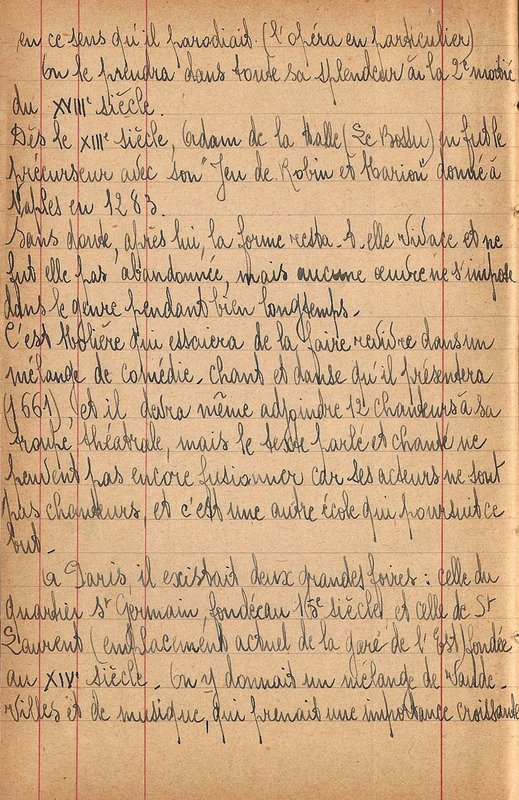 en ce sens qu'il parodiait (l'opéra en particulier)
On le prendra dans toute sa splendeur à la 2e moitié
du XVIIIe siècle.
Dès le XIIIe siècle, Adam de la Halle (Le Bossu) en fut le
précurseur avec son "Jeu de Robin et Marion" donné à
Naples en 1283.
Sans doute, après lui, la forme resta-t-elle vivace et ne
fut elle pas abandonnée, mais aucune œuvre ne s'impose
dans le genre pendant bien longtemps.
C'est Molière qui essaiera de la faire revivre dans un
mélange de comédie - chant et danse qu'il présentera
(1661), et il devra même adjoindre 12 chanteurs à sa
troupe théatrale, mais le texte parlé et chanté ne
peuvent pas encore fusionner car ses acteurs ne sont
pas chanteurs, et c'est une autre école qui poursuit ce
but.
A Paris, il existait deux grandes foires : celle du
quartier St Germain, fondée au siècle, et celle de St
Laurent (emplacement actuel de la gare de l'Est) fondée
au XIVe siècle. On y donnait un mélange de Vaude-
villes et de musique, qui prenait une importance croissante